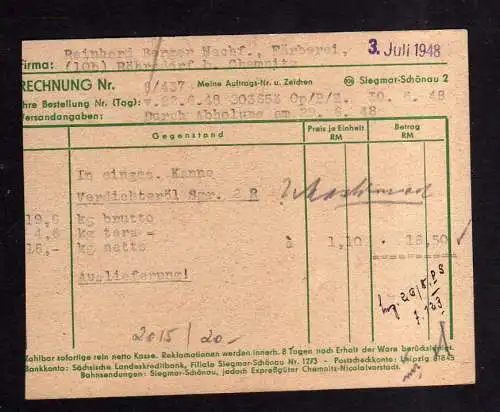 Reinhard Berger Nachf., Färberei,
Firma: (10b) Röhrsdorf b. Chemnitz
3. Juli 1948
RECHNUNG Nr. 8/437 Meine Auftrags-Nr. u. Zeichen Siegmar-Schönau 2
Ihre Bestellung Nr. (Tag): v.22.6.48 203653 Op/B/Z. 30.6.48
Versandangaben: Durch Abholung am 29.6.48.
Gegenstand Preis je Einheit RM Betrag RM
In einges. Kanne
Verdichteröl Spr. 2 R
19,6 kg brutto
4,6 kg tara =
15,- kg netto à 1,10 . 16,50
Auslieferung!
2015/20.-
Zahlbar sofortige rein netto Kasse. Reklamationen werden innerh. 8 Tagen nach Erhalt der Ware berücksichtigt.
Bankkonto: Sächsische Landeskreditbank, Filiale Siegmar-Schönau Nr. 1273 - Postscheckkonto: Leipzig 81845
Bahnsendungen: Siegmar-Schönau, jedoch Expreßgüter Chemnitz-Nicolaivorstadt.